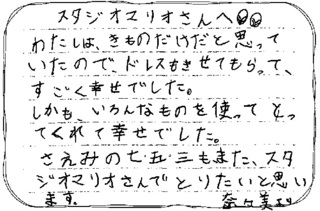 スタジオマリオさんへ
わたしは、きものだけだと思って
いたので、ドレスもきせてもらって、
すごく幸せでした。
しかも、いろんなものを使ってとっ
てくれて幸せでした。
さえみの七五三もまた、スタ
ジオマリオさんでとりたいと思い
ます。 奈々美より